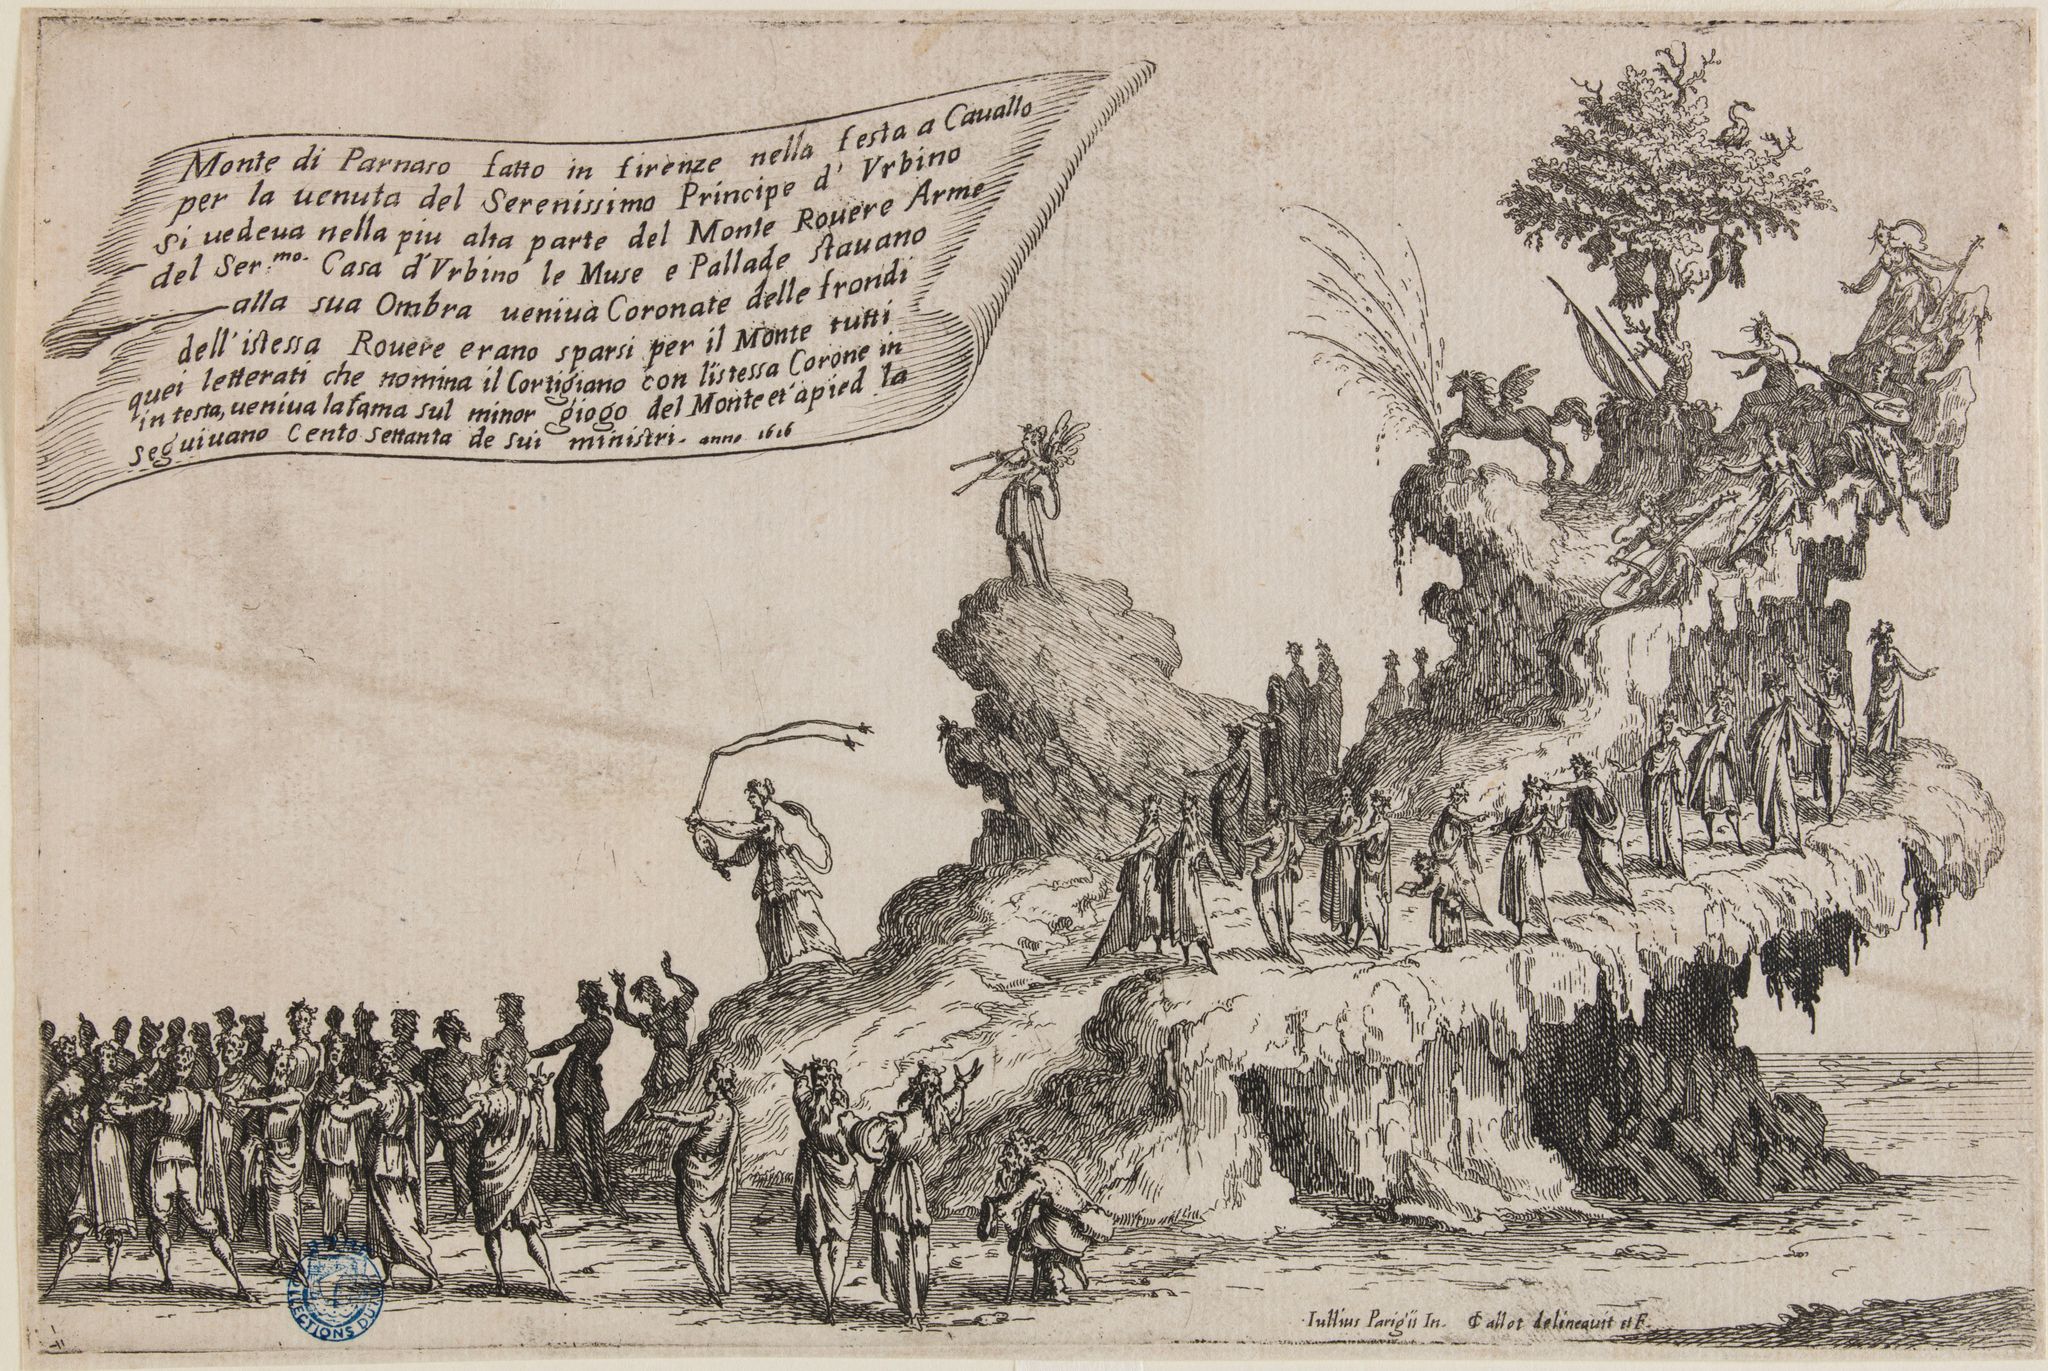 Monte di Parnaso fatto in firenze nella festa a Cauallo
per la uenuta del Serenissimo Principe d' Vrbino
Si uedeua nella piu alta parte del Monte Rouere Arme
del Ser.mo. Casa d'Vrbino le Muse e Pallade stauano
alla sua Ombra ueniua Coronate delle frondi
dell'istessa Rouere erano sparsi per il Monte tutti
quei letterati che nomina il Cortigiano con listessa Corone in
in testa, ueniua la fama sul minor giogo del Monte et' a pied. la
seguiuano Cento settanta de sui ministri. anno 1616
Iullius Parigii In. Callot delineauit et F.